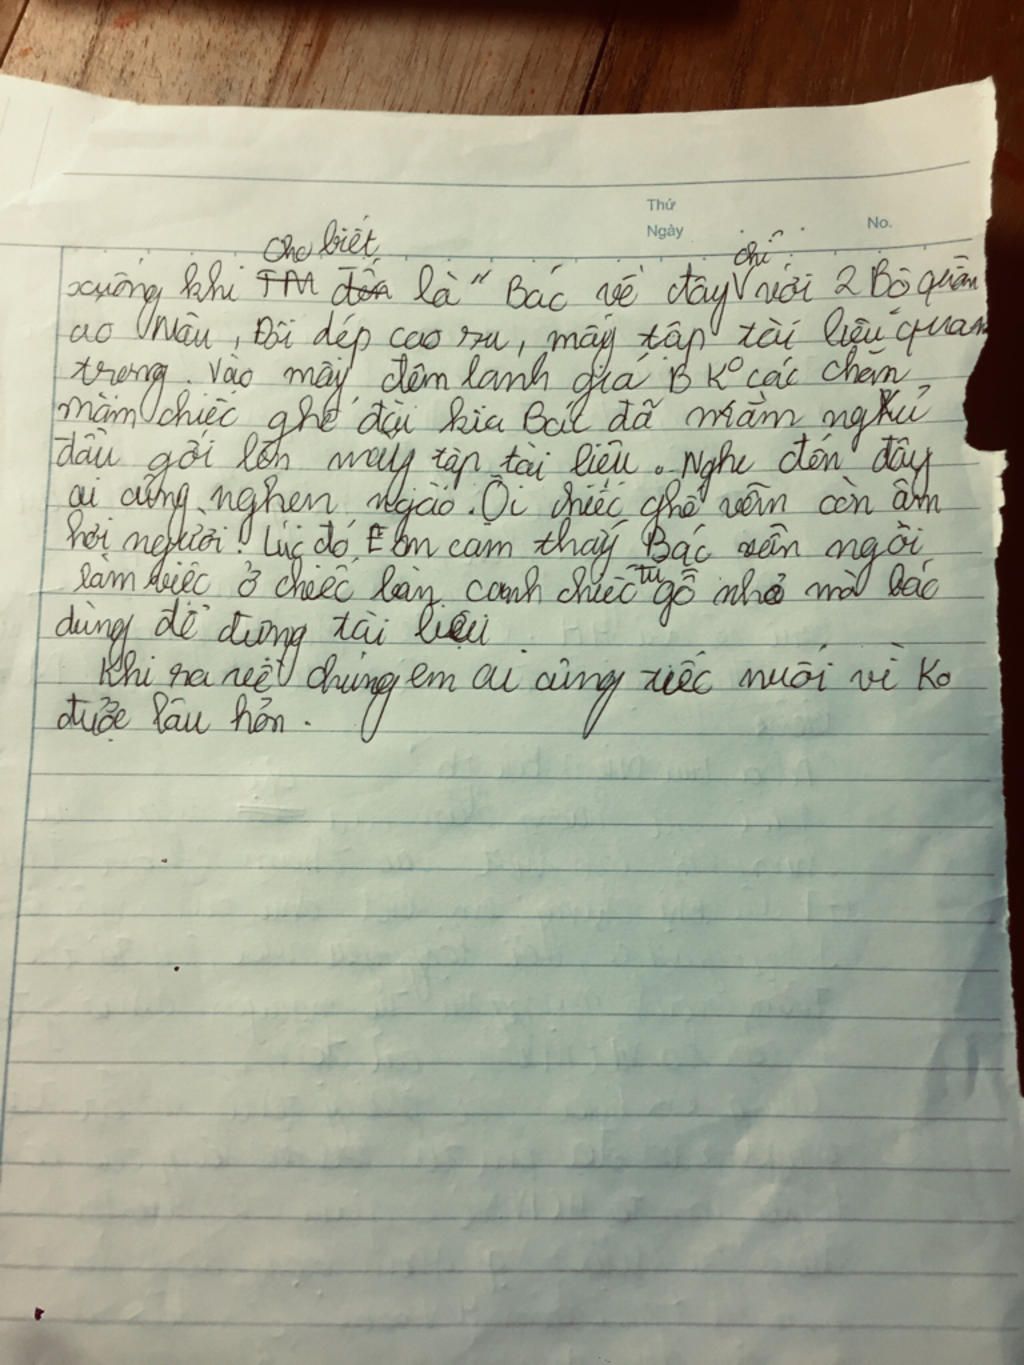 Thứ
Ngày
No.
cho biết
chỉ
xuống khi TM đến là " Bác về đây V với 2 Bộ quần
ao Nâu, Đôi dép cao su, mấy tập tài liệu quan
trong. Vào mấy đêm lanh giá B Kº các chăn
màn chiếc ghế dài kia Bác đã nằm ngủ
đầu gối lên mấy tập tài liệu. Nghe đến đây
ai cũng nghen ngào. Ôi chiếc ghế vẫn còn âm
hơi người! Lúc đó Em cam thấy Bác vẫn ngồi
làm việc ở chiếc bàn canh chiếc tu gỗ nhỏ mà bác
dùng để đưng tài liệu
Khi ra về chúng em ai cũng tiếc nuối vì Ko
được lâu hơn.